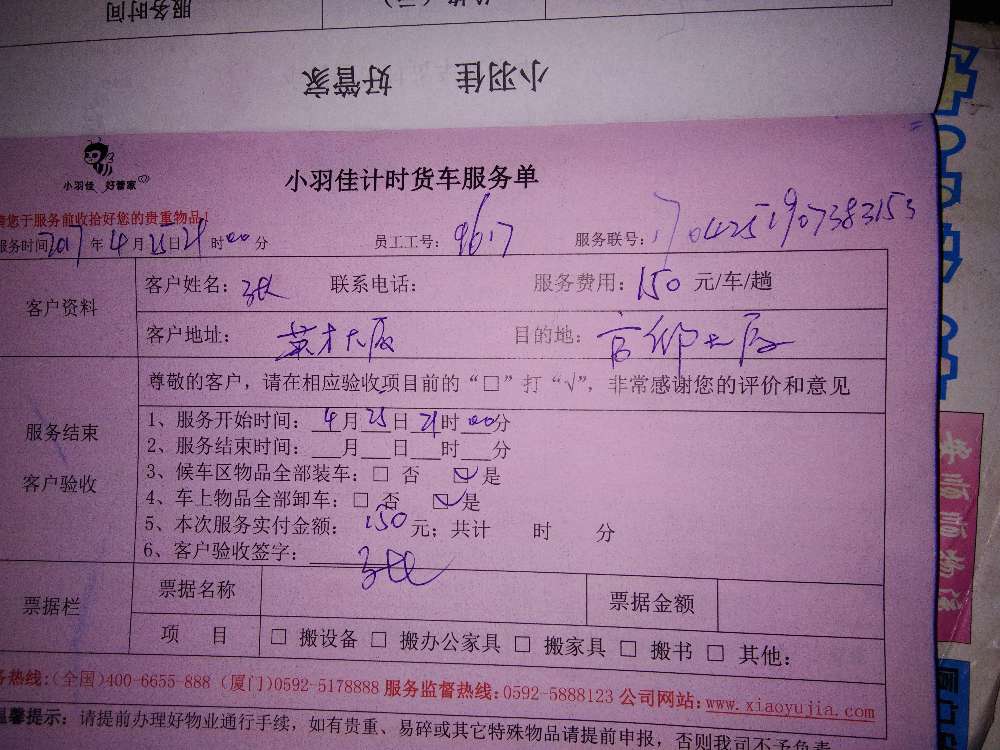 服务时间
小羽佳 好管家
小羽佳 好管家
小羽佳计时货车服务单
请您于服务前收拾好您的贵重物品！
服务时间2017年4月25日21时00分 员工工号：9617 服务联号：1704251907383153
客户资料
客户姓名：张 联系电话： 服务费用：150元/车/趟
客户地址：英才大厦 目的地：大厦
尊敬的客户，请在相应验收项目前的“□”打“√”，非常感谢您的评价和意见
服务结束
客户验收
1、服务开始时间：4月25日21时00分
2、服务结束时间：___月___日___时___分
3、候车区物品全部装车：□ 否 ☑是
4、车上物品全部卸车：□ 否 ☑是
5、本次服务实付金额：150元；共计 时 分
6、客户验收签字：张
票据栏
票据名称 票据金额
项 目 □ 搬设备 □ 搬办公家具 □ 搬家具 □ 搬书 □ 其他：
务热线：(全国)400-6655-888 (厦门)0592-5178888 服务监督热线：0592-5888123 公司网站：www.xiaoyujia.com
温馨提示：请提前办理好物业通行手续，如有贵重、易碎或其它特殊物品请提前申报，否则我司不予负责